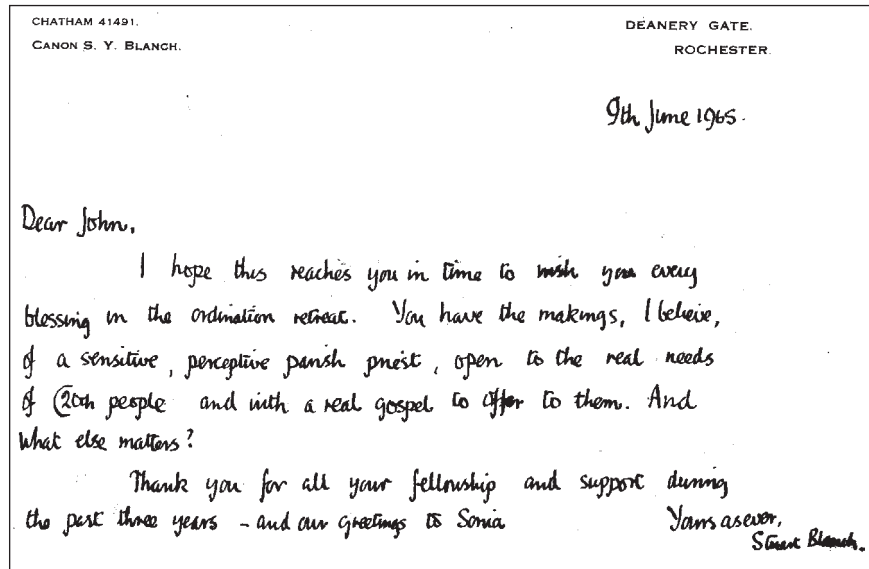 CHATHAM 41491.
CANON S. Y. BLANCH.
DEANERY GATE.
ROCHESTER.
9th June 1965.
Dear John,
I hope this reaches you in time to wish you every
blessing in the ordination retreat. You have the makings, I believe,
of a sensitive, perceptive parish priest, open to the real needs
of C20th people and with a real gospel to offer to them. And
what else matters?
Thank you for all your fellowship and support during
the past three years - and our greetings to Sonia
Yours as ever,
Stuart Blanch.